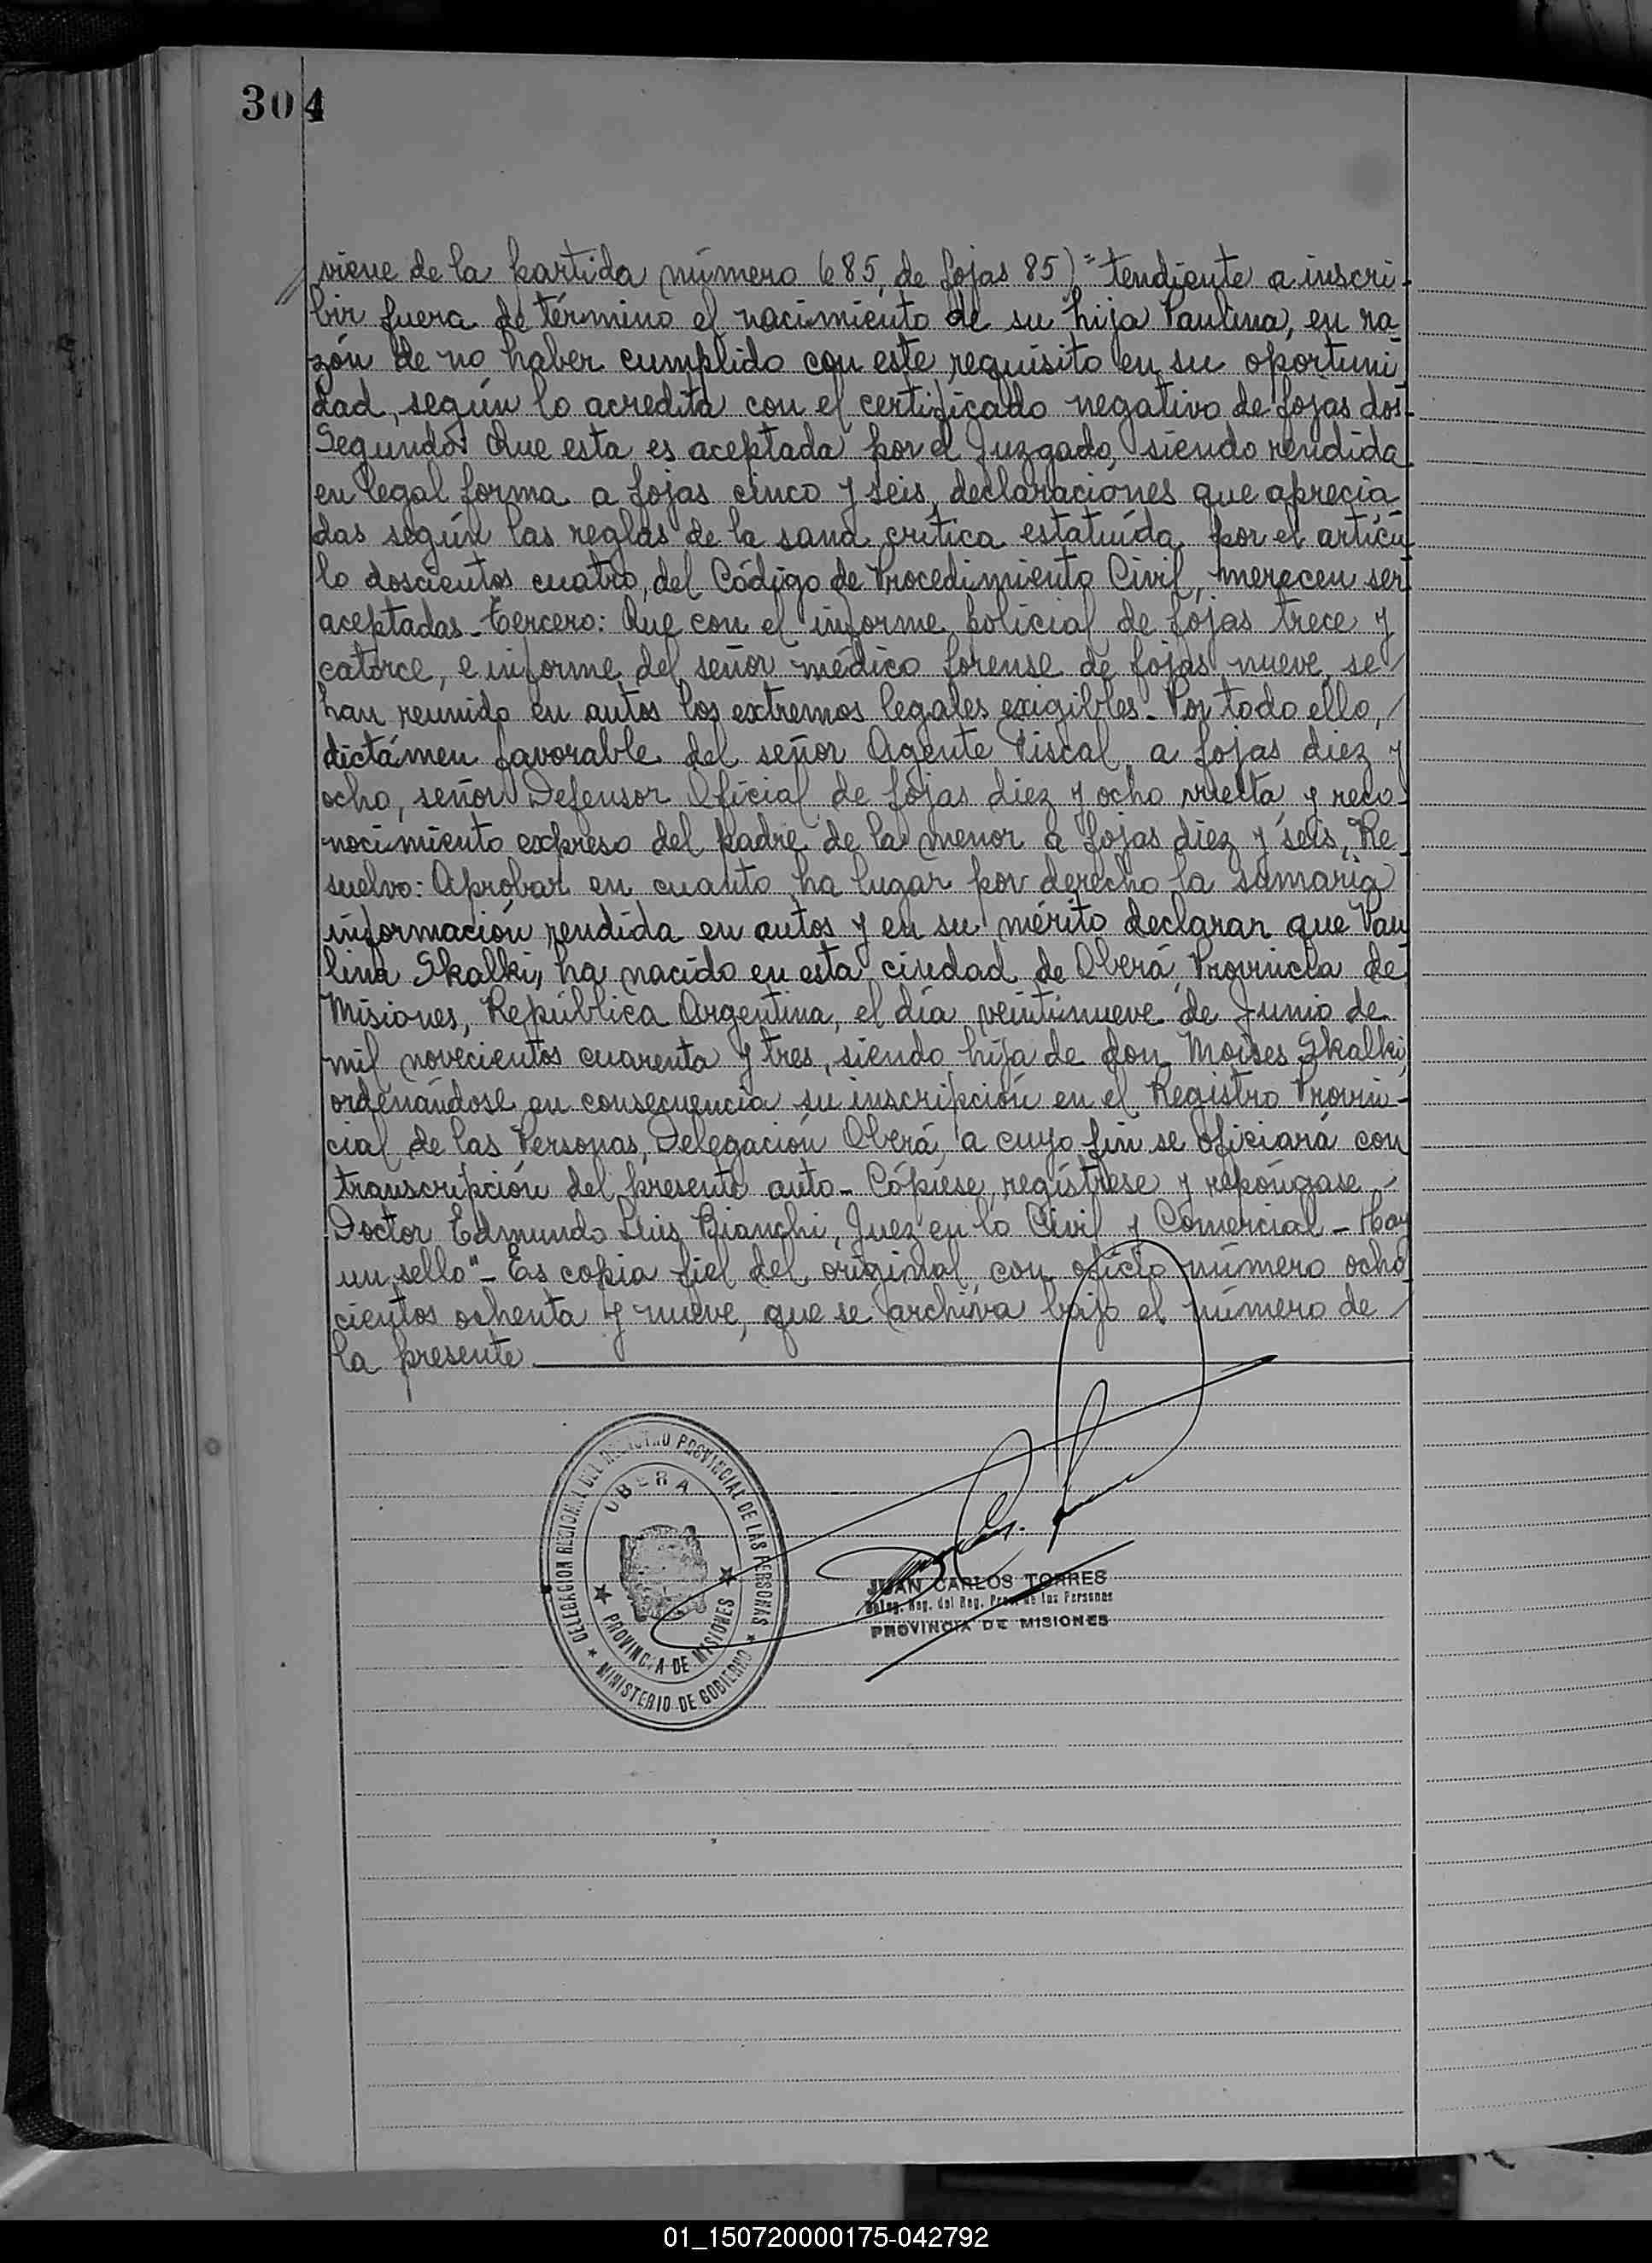 304
viene de la partida número 685, de fojas 85) "tendiente a inscri-
bir fuera de término el nacimiento de su hija Paulina, en ra
zón de no haber cumplido con este requisito en su oportuni-
dad, según lo acredita con el certificado negativo de fojas dos-
Segundo: Que esta es aceptada por el Juzgado, siendo rendida
en legal forma a fojas cinco y seis, declaraciones que aprecia
das según las reglas de la sana crítica estatuída por el artícu-
lo doscientos cuatro, del Código de Procedimiento Civil, merecen ser
aceptadas- Tercero: Que con el informe policial de fojas trece y
catorce, e informe del señor médico forense de fojas nueve, se
han reunido en autos los extremos legales exigibles- Por todo ello,
dictámen favorable del señor Agente Fiscal a fojas diez y
ocho, señor Defensor Oficial de fojas diez y ocho vuelta y reco-
nocimiento expreso del padre de la menor a fojas diez y seis, Re-
suelvo: Aprobar en cuanto ha lugar por derecho la sumaria
información rendida en autos y en su mérito declarar que Pau
lina Skalki, ha nacido en esta ciudad de Oberá, Provincia de
Misiones, República Argentina, el día veintinueve de Junio de
mil novecientos cuarenta y tres, siendo hija de don Moises Skalki,
ordenándose en consecuencia su inscripción en el Registro Provin-
cial de las Personas, Delegación Oberá, a cuyo fin se oficiará con
transcripción del presente auto- Cópiese, regístrese y repóngase-
Doctor Edmundo Luis Bianchi, Juez en lo Civil y Comercial- Hay
un sello"- Es copia fiel del original, con oficio número ocho
cientos ochenta y nueve, que se archiva bajo el número de
la presente
DELEGACION REGIONAL DEL REGISTRO PROVINCIAL DE LAS PERSONAS
OBERA
PROVINCIA DE MISIONES
MINISTERIO DE GOBIERNO
JUAN CARLOS TORRES
Deleg. Reg. del Reg. Prov. de las Personas
PROVINCIA DE MISIONES
01_150720000175-042792